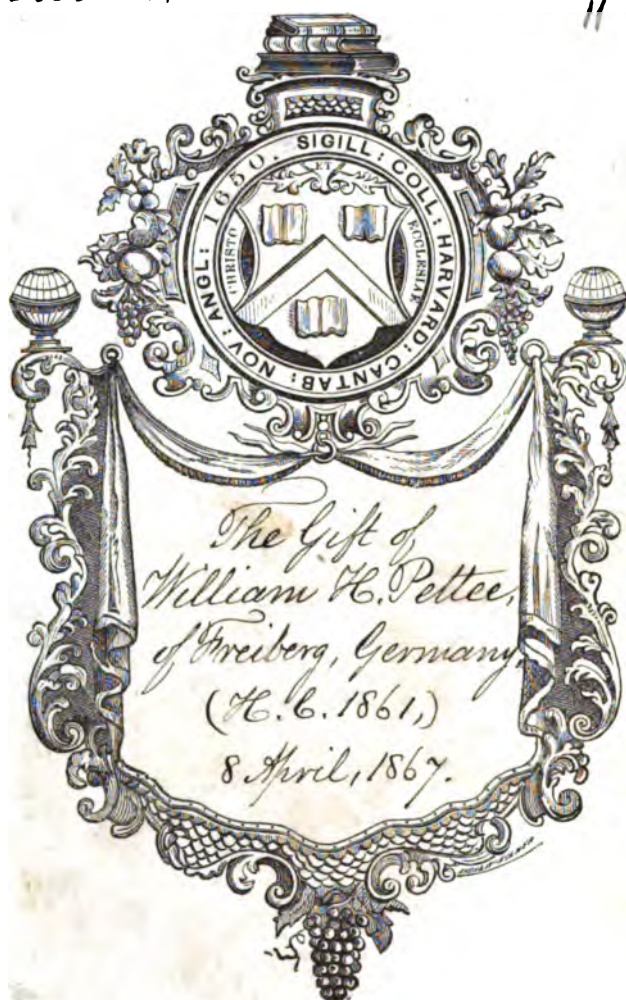 SIGILL: COLL: HARVARD: CANTAB: NOV: ANGL: 1650.
CHRISTO
ET
ECCLESIAE
The Gift of
William H. Pettee,
of Freiberg, Germany,
(H.C. 1861,)
8 April, 1867.